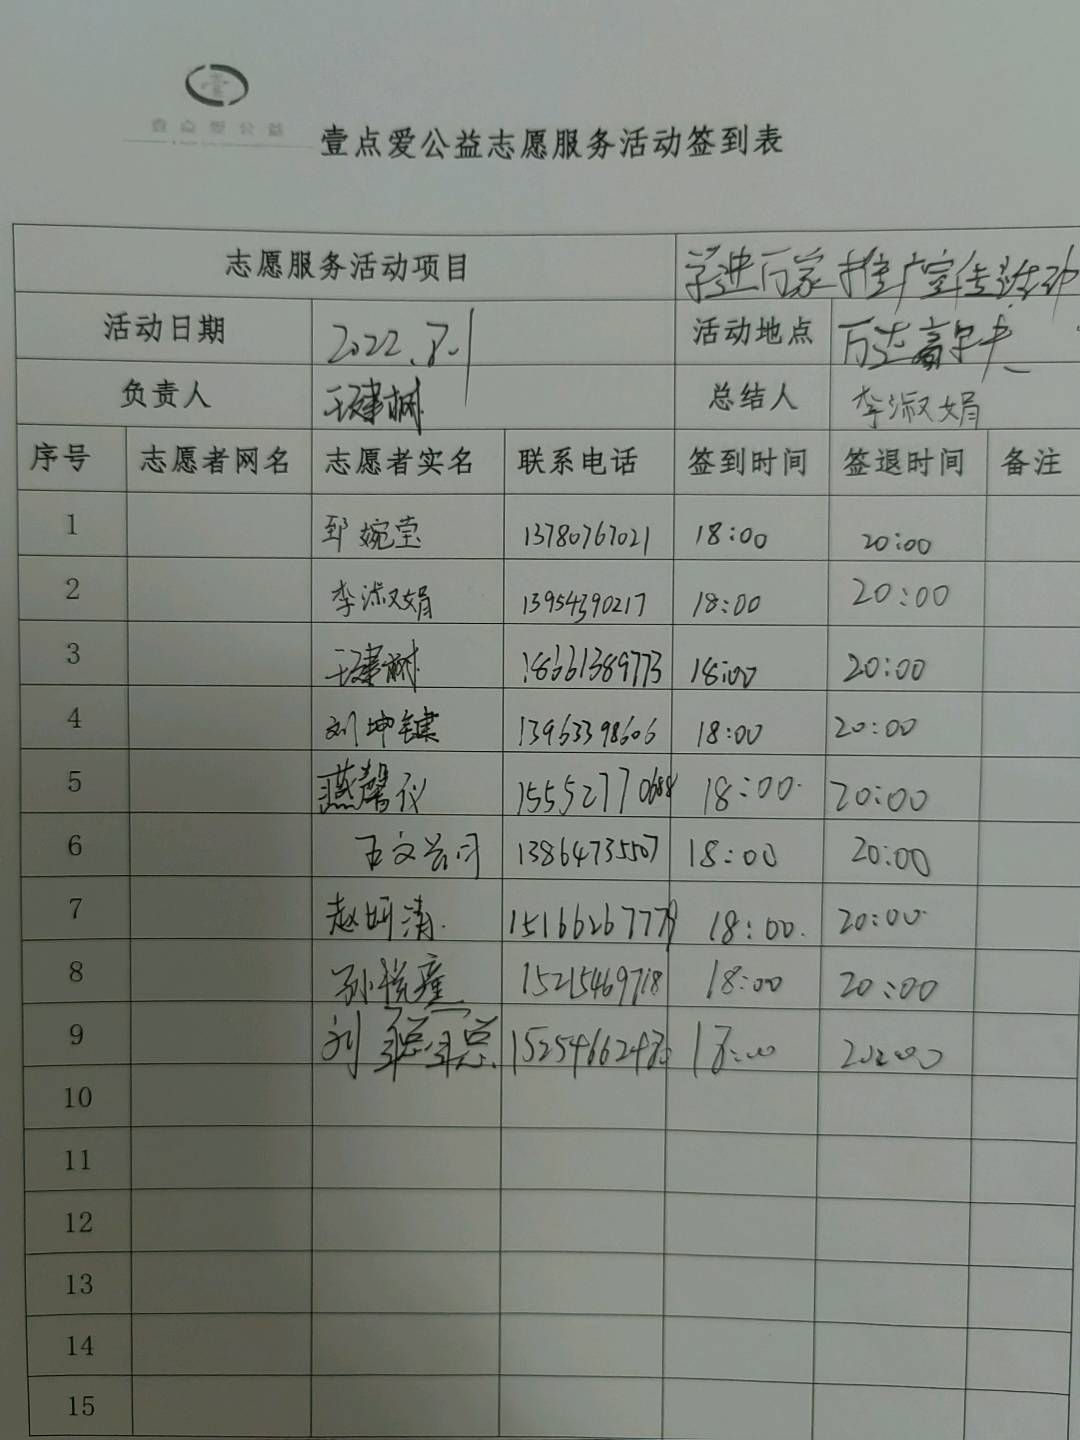 壹点爱公益
壹点爱公益志愿服务活动签到表
志愿服务活动项目 进万家推广宣传活动
活动日期 2022.8.1 活动地点 万达嘉华
负责人 王建树 总结人 李淑娟
序号 志愿者网名 志愿者实名 联系电话 签到时间 签退时间 备注
1 邹婉莹 13780767021 18:00 20:00
2 李淑娟 13954390217 18:00 20:00
3 王建树 18661389773 18:00 20:00
4 刘坤键 13963398606 18:00 20:00
5 燕馨仪 15552770688 18:00 20:00
6 王文 13864735507 18:00 20:00
7 赵妍清 15166267779 18:00 20:00
8 孙悦童 15215469718 18:00 20:00
9 刘 18:00 20:00
10
11
12
13
14
15